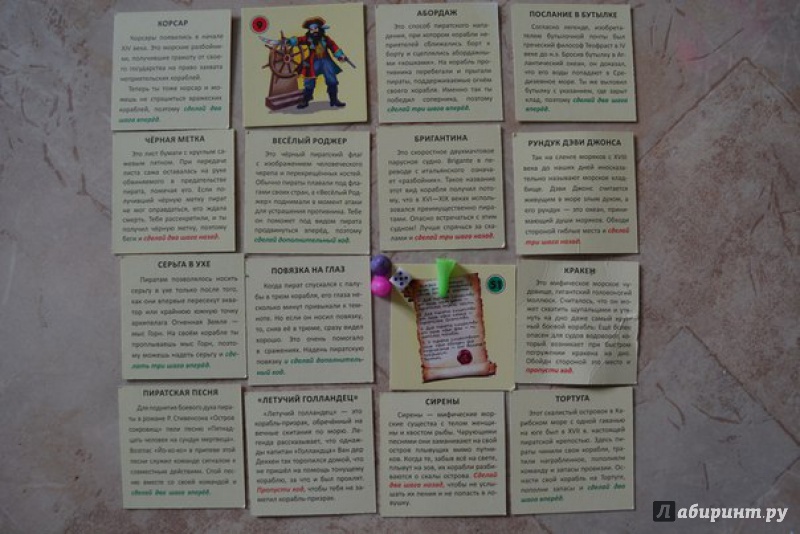 КОРСАР
Корсары появились в начале
XIV века. Это морские разбойни-
ки, получившие грамоту от свое-
го государства на право захвата
неприятельских кораблей.
Теперь ты тоже корсар и мо-
жешь не страшиться вражеских
кораблей, поэтому сделай два
шага вперёд.
9
АБОРДАЖ
Это способ пиратского напа-
дения, при котором корабли не-
приятелей сближались борт к
борту и сцеплялись абордажны-
ми «кошками». На корабль про-
тивника перебегали и прыгали
пираты, поддерживаемые огнём
своего корабля. Именно так ты
победил соперника, поэтому
сделай три шага вперёд.
ПОСЛАНИЕ В БУТЫЛКЕ
Согласно легенде, изобрета-
телем бутылочной почты был
греческий философ Теофраст в IV
веке до н.э. Бросив бутылку в Ат-
лантический океан, он доказал,
что его воды попадают в Сре-
диземное море. Ты же выловил
бутылку с указанием, где зарыт
клад, поэтому сделай два шага
вперёд.
ЧЁРНАЯ МЕТКА
Это лист бумаги с круглым са-
жевым пятном. При передаче
листа сажа оставалась на руке
обвиняемого в предательстве
пирата, помечая его. Если по-
лучивший чёрную метку пират
не мог оправдаться, его ждала
смерть. Тебя рассекретили, и ты
получил чёрную метку, поэтому
беги и сделай два шага назад.
ВЕСЁЛЫЙ РОДЖЕР
Это чёрный пиратский флаг
с изображением человеческого
черепа и перекрещённых костей.
Обычно пираты плавали под фла-
гами своих стран, а «Весёлый Род-
жер» поднимали в момент атаки
для устрашения противника. Тебе
он поможет под видом пирата
продвинуться вперёд, поэтому
сделай дополнительный ход.
БРИГАНТИНА
Это скоростное двухмачтовое
парусное судно. Brigante в пе-
реводе с итальянского означа-
ет «разбойник». Такое название
этот вид корабля получил пото-
му, что в XVI—XIX веках исполь-
зовался преимущественно пира-
тами. Опасно встречаться с этим
судном! Лучше спрячься за ска-
лами и сделай три шага назад.
РУНДУК ДЭВИ ДЖОНСА
Так на сленге моряков с XVIII
века до наших дней иносказа-
тельно называют морское клад-
бище. Дэви Джонс считается
живущим в море злым духом, а
его рундук — это океан, прини-
мающий души моряков. Обходи
стороной гиблые места и сделай
три шага назад.
СЕРЬГА В УХЕ
Пиратам позволялось носить
серьгу в ухе только после того,
как они впервые пересекут эква-
тор или крайнюю южную точку
архипелага Огненная Земля —
мыс Горн. На своём корабле ты
проплываешь мыс Горн, поэто-
му можешь надеть серьгу и сде-
лать три шага вперёд.
ПОВЯЗКА НА ГЛАЗ
Когда пират спускался с палу-
бы в трюм корабля, его глаза не-
сколько минут привыкали к тем-
ноте. Но если он носил повязку,
то, сняв её в трюме, сразу видел
хорошо. Это очень помогало
в сражениях. Надень пиратскую
повязку и сделай дополнитель-
ный ход.
51
КРАКЕН
Это мифическое морское чу-
довище, гигантский головоногий
моллюск. Считалось, что он мо-
жет схватить щупальцами и утя-
нуть на дно даже самый крупный
боевой корабль. Ещё более
опасен для судов водоворот,
который возникает при быстром
погружении кракена на дно.
Обойди стороной это место и
пропусти ход.
ПИРАТСКАЯ ПЕСНЯ
Для поднятия боевого духа пира-
ты в романе Р. Стивенсона «Остров
сокровищ» пели песню «Пятнад-
цать человек на сундук мертвеца».
Возглас «Йо-хо-хо» в припеве этой
песни служил командой сигналом к
совместным действиям. Спой пес-
ню вместе со своей командой и
сделай два шага вперёд.
«ЛЕТУЧИЙ ГОЛЛАНДЕЦ»
«Летучий голландец» — это
корабль-призрак, обречённый на
вечные скитания по морю. Ле-
генда рассказывает, что однаж-
ды капитан «Голландца» Ван дер
Деккен так торопился домой, что
не пришёл на помощь тонущему
кораблю, за что и был проклят.
Пропусти ход, чтобы тебя не за-
метил корабль-призрак.
СИРЕНЫ
Сирены — мифические мор-
ские существа с телом женщи-
ны и хвостом рыбы. Чарующими
песнями они заманивают на свой
остров плывущих мимо путни-
ков. Когда те, забыв всё на свете,
плывут на зов, их корабли разби-
ваются о скалы острова. Сделай
два шага назад, чтобы не услы-
шать их пения и не попасть в ло-
вушку.
ТОРТУГА
Этот скалистый островок в Ка-
рибском море с одной гаванью
на юге был в XVII в. настоящей
пиратской крепостью. Здесь пи-
раты чинили свои корабли, тра-
тили награбленное, пополняли
команду и запасы провизии. Ос-
насти свой корабль на Тортуге,
пополни запасы и сделай два
шага вперёд.
Лабиринт.ру